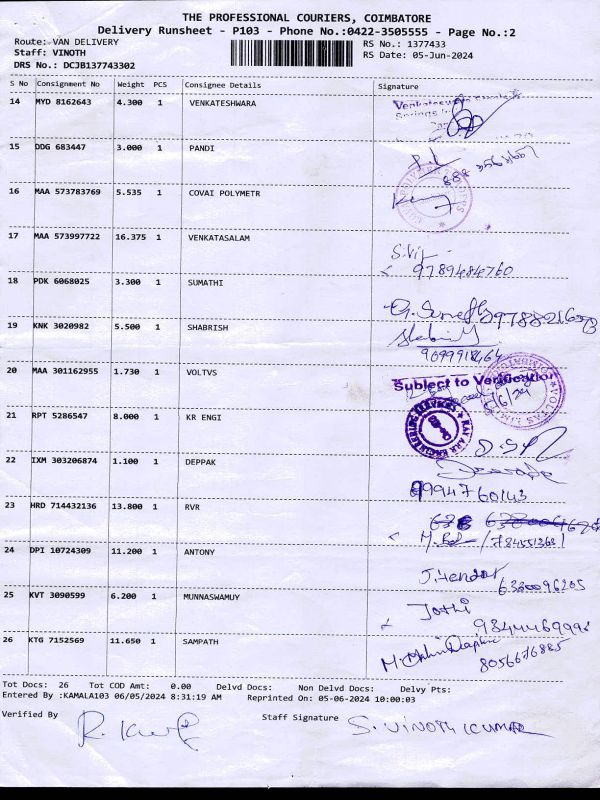 THE PROFESSIONAL COURIERS, COIMBATORE
Delivery Runsheet - P103 - Phone No.:0422-3505555 - Page No.:2
Route: VAN DELIVERY
RS No.: 1377433
Staff: VINOTH
RS Date: 05-Jun-2024
DRS No.: DCJB137743302
S No Consignment No Weight PCS Consignee Details Signature
14 MYD 8162643 4.300 1 VENKATESHWARA
Venkateswara
Springs
15 DDG 683447 3.000 1 PANDI
16 MAA 573783769 5.535 1 COVAI POLYMETR
17 MAA 573997722 16.375 1 VENKATASALAM
S.Vij
9789484760
18 PDK 6068025 3.300 1 SUMATHI
19 KNK 3020982 5.500 1 SHABRISH
20 MAA 301162955 1.730 1 VOLTVS
Subject to Verification
21 RPT 5286547 8.000 1 KR ENGI
22 IXM 303206874 1.100 1 DEPPAK
9994760143
23 HRD 714432136 13.800 1 RVR
24 DPI 10724309 11.200 1 ANTONY
6380096205
25 KVT 3090599 6.200 1 MUNNASWAMUY
Jothi
26 KTG 7152569 11.650 1 SAMPATH
8056676885
Tot Docs: 26 Tot COD Amt: 0.00 Delvd Docs: Non Delvd Docs: Delvy Pts:
Entered By :KAMALA103 06/05/2024 8:31:19 AM Reprinted On: 05-06-2024 10:00:03
Verified By
Staff Signature S. VINOTH KUMAR